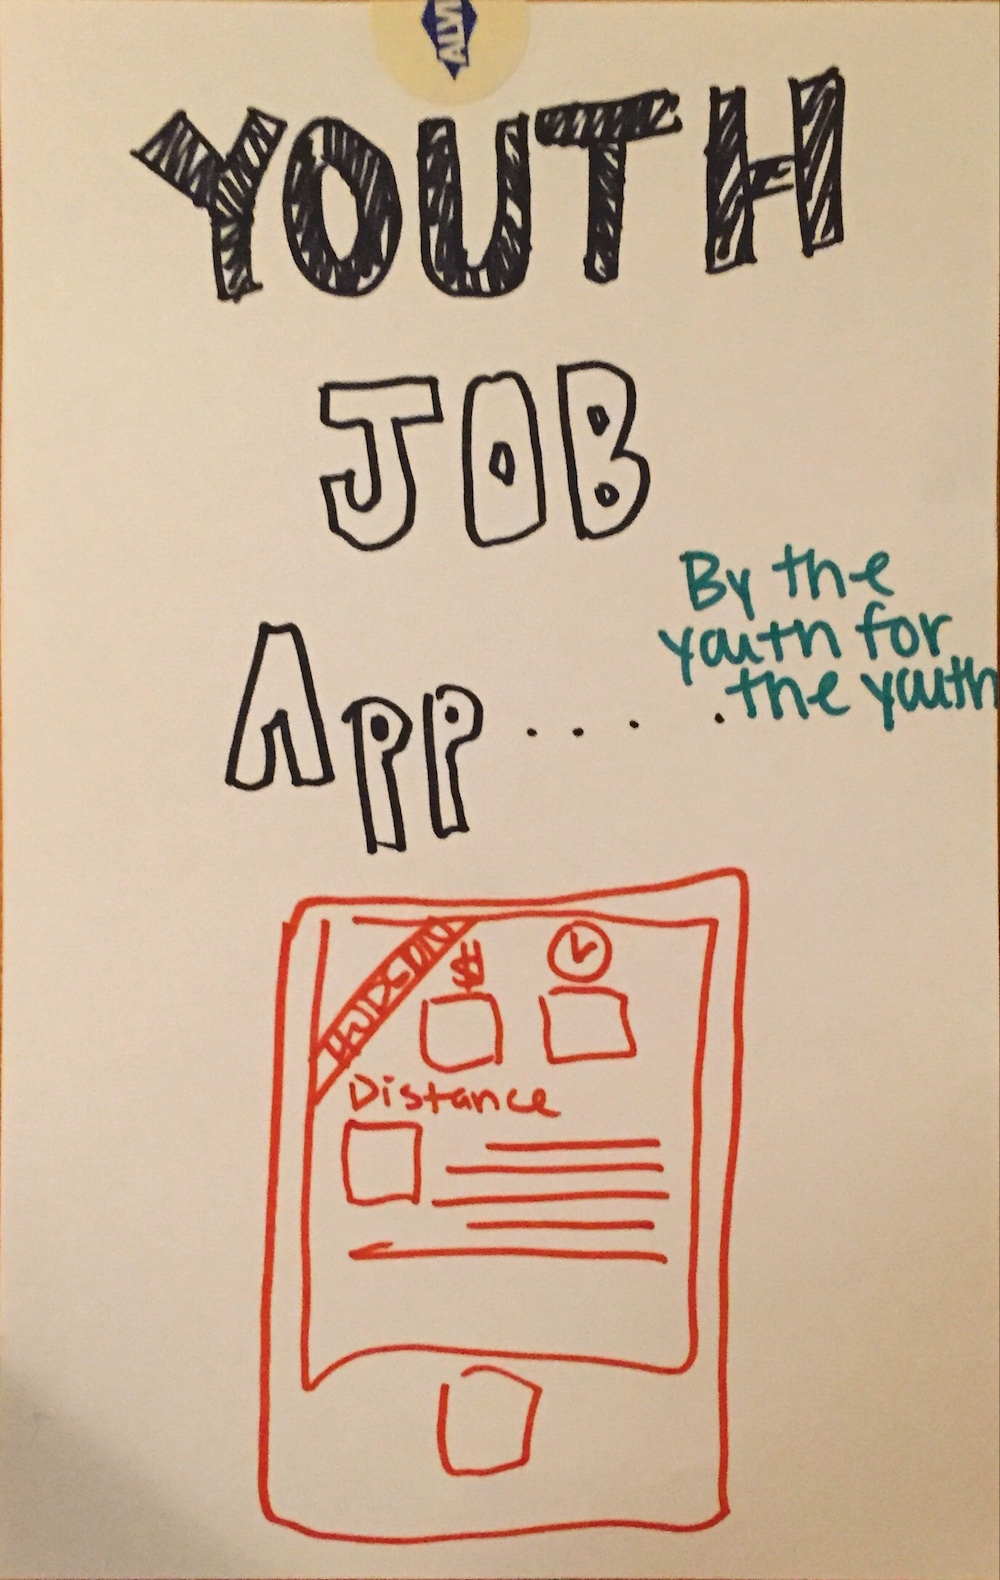 ALVI
YOUTH
JOB
App....
By the
youth for
the youth
HUDSON
$
Distance